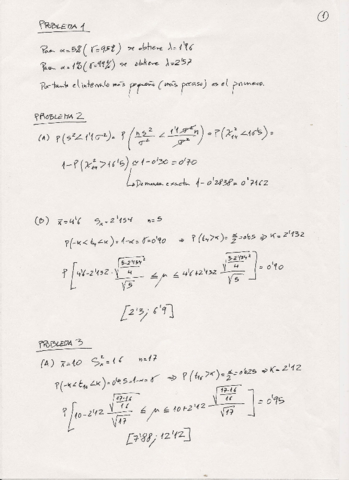 1
PROBLEMA 1
Para α=5% (γ=95%) se obtiene λ=1'96
Para α=1% (γ=99%) se obtiene λ=2'57
Por tanto el intervalo más pequeño (más preciso) es el primero.
PROBLEMA 2
(A) P(s²<1'1σ²) = P(ns²/σ² < 1'1σ²n/σ²) = P(χ²₁₄<16'5) =
1-P(χ²₁₄>16'5) ≃ 1-0'30 = 0'70
1-0'2838 = 0'7162
(B) x̄=4'6 Sₓ=2'154 n=5
P(-K<t₄<K)=1-α=γ=0'90 ⇒ P(t₄>K)=α/2=0'05 ⇒ K=2'132
≤ μ ≤ = 0'90
[2'3; 6'9]
PROBLEMA 3
(A) x̄=10 Sₓ²=16 n=17
P(-K<t₁₆<K)=0'95=1-α=γ ⇒ P(t₁₆>K)=α/2=0'025 ⇒ K=2'12
P[10-2'12 √(17·16/16)/√17 ≤ μ ≤ 10+2'12 √(17·16/16)/√17] = 0'95
[7'88; 12'12]